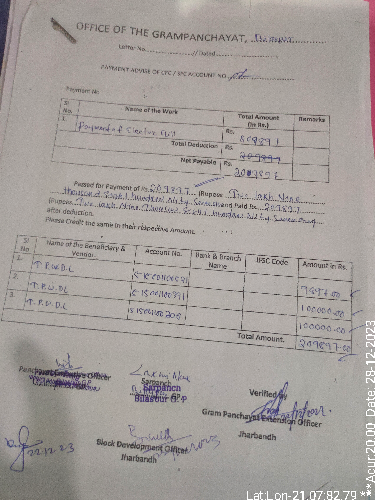 OFFICE OF THE GRAMPANCHAYAT,
Letter No. //Dated
PAYMENT ADVISE OF CFC / SFC ACCOUNT NO.
Payment №
Sl No. Name of the Work Total Amount (in Rs.) Remarks
1. Payment of Electric Bill Rs. 209897
Total Deduction Rs.
Net Payable 209897
Passed for Payment of Rs 209897 (Rupees Two lakh Nine
Thousand Eight Hundred Ninty Seven and Paid Rs. 209897
(Rupees Two lakh Nine Thousand Eight Hundred Ninty Seven
after deduction.
Please Credit the same in their respective Amount.
Sl No Name of the Beneficiary & Vendor. Account No. Bank & Branch Name IFSC Code Amount in Rs.
1. T.P.W.D.L 9897.00
2. T.P.W.D.L 100000.00
3. T.P.W.D.L 100000.00
Total Amount. 209897.00
Panchayat Executive Officer
Sarpanch
Sarpanch
Bilaspur G.P
Verified by
Gram Panchayat Extension Officer
Jharbandh
22.12.23
Block Development Officer
Jharbandh
Lat:Lon-21.07:82.79
**Acur:20.00, Date, 28-12-2023